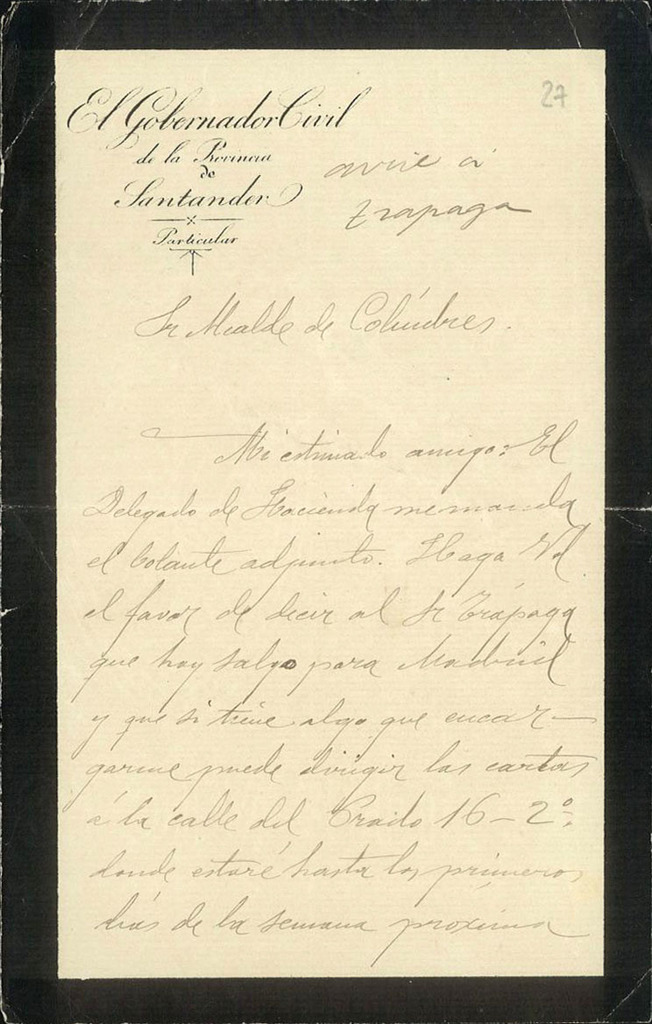 27
El Gobernador Civil
de la Provincia
de
Santander
Particular
avisé á
Trapaga
Sr Alcalde de Colindres.
Mi estimado amigo: El
Delegado de Hacienda me manda
el bolante adjunto. Haga Vd
el favor de decir al Sr Trápaga
que hoy salgo para Madrid
y que si tiene algo que encar-
garme puede dirigir las cartas
á la calle del Prado 16-2º,
donde estaré hasta los primeros
dias de la semana proxima